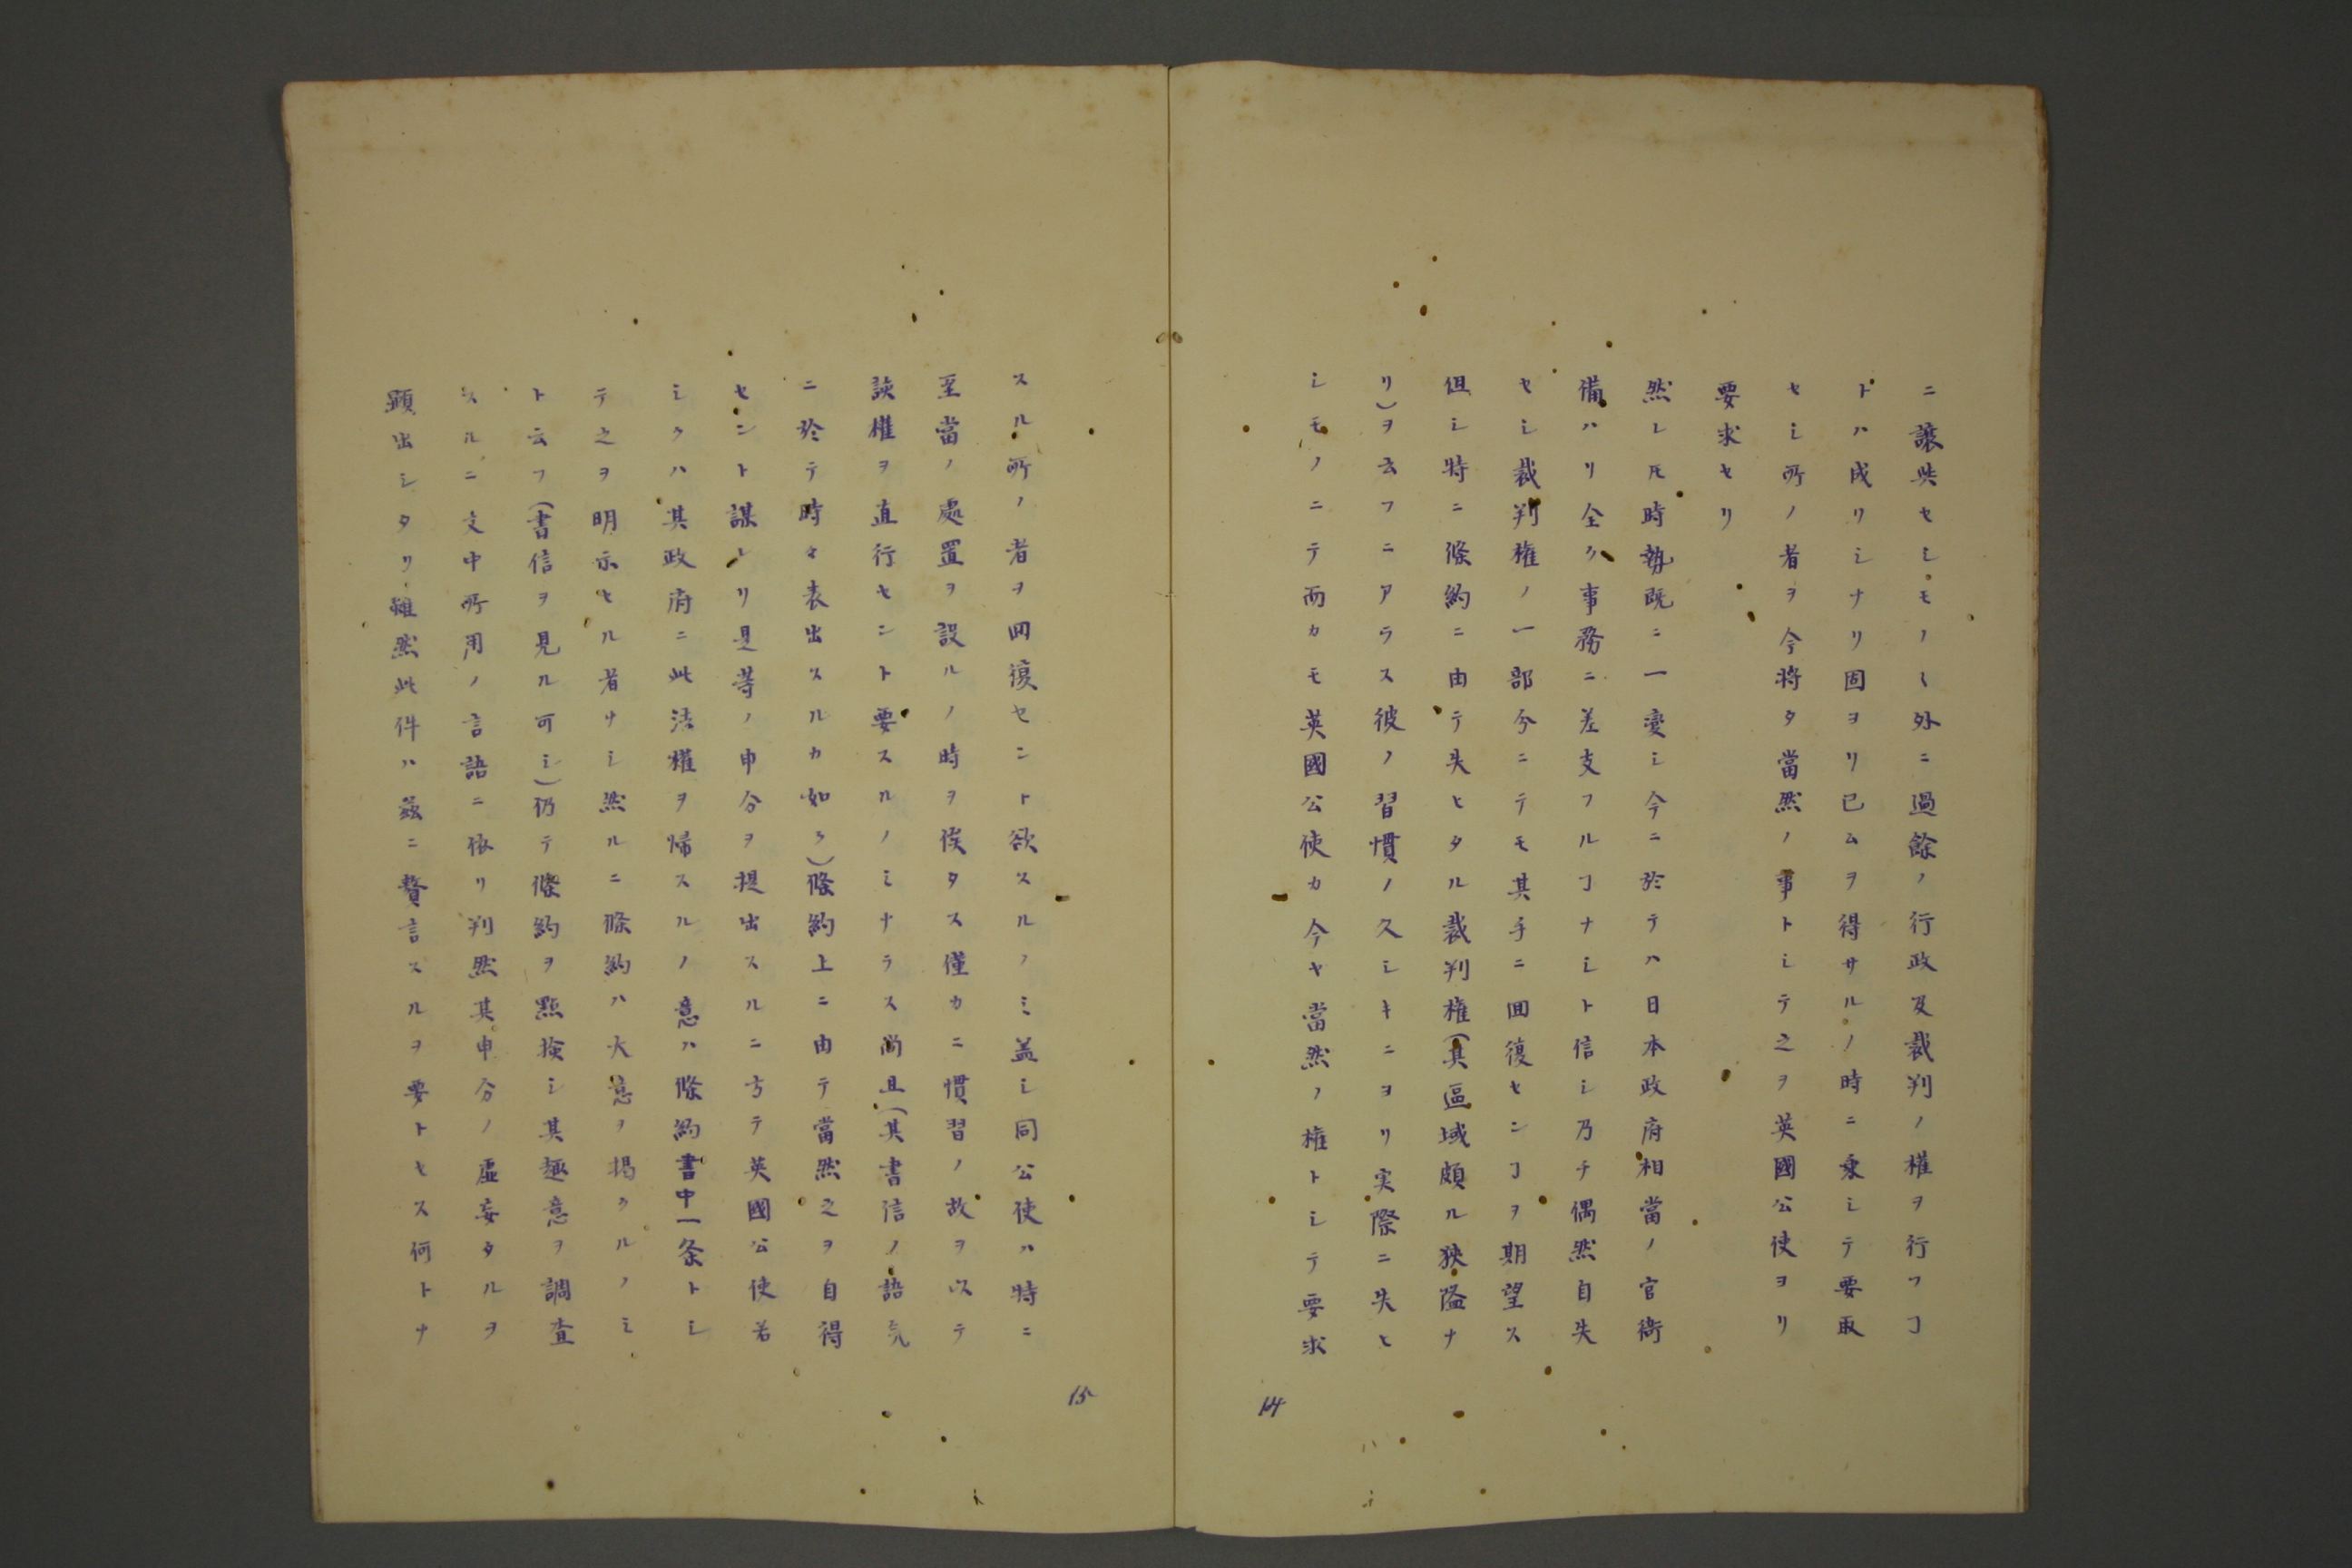 ニ譲與セシモノヽ外ニ過餘ノ行政及裁判ノ權ヲ行フヿ
トハ成リシナリ固ヨリ已ムヲ得サルノ時ニ乗シテ要取
セシ所ノ者ヲ今将タ當然ノ事トシテ之ヲ英國公使ヨリ
要求セリ
然レ𪜈時勢既ニ一変シ今ニ於テハ日本政府相當ノ官衙
備ハリ全ク事務ニ差支フルヿナシト信シ乃チ偶然自失
セシ裁判権ノ一部分ニテモ其手ニ囬復センヿヲ期望ス
但シ特ニ條約ニ由テ失ヒタル裁判権(其區域頗ル狭隘ナ
リ)ヲ云フニアラス彼ノ習慣ノ久シキニヨリ実際ニ失ヒ
シモノニテ而カモ英國公使カ今ヤ當然ノ権トシテ要求
14
スル所ノ者ヲ囬復セント欲スルノミ盖シ同公使ハ特ニ
至當ノ處置ヲ設ルノ時ヲ俟タス僅カニ慣習ノ故ヲ以テ
該権ヲ直行セント要スルノミナラス尚且(其書信ノ語気
ニ於テ時々表出スルカ如ク)條約上ニ由テ當然之ヲ自得
セント謀レリ是等ノ申分ヲ提出スルニ方テ英國公使若
シクハ其政府ニ此法權ヲ帰スルノ意ハ條約書中一条トシ
テ之ヲ明示セル者ナシ然ルニ條約ハ大意ヲ掲クルノミ
ト云フ(書信ヲ見ル可シ)仍テ條約ヲ點検シ其趣意ヲ調査
スルニ文中所用ノ言語ニ依リ判然其申分ノ虚妄タルヲ
顕出シタリ雖然此件ハ茲ニ贅言スルヲ要トセス何トナ
15